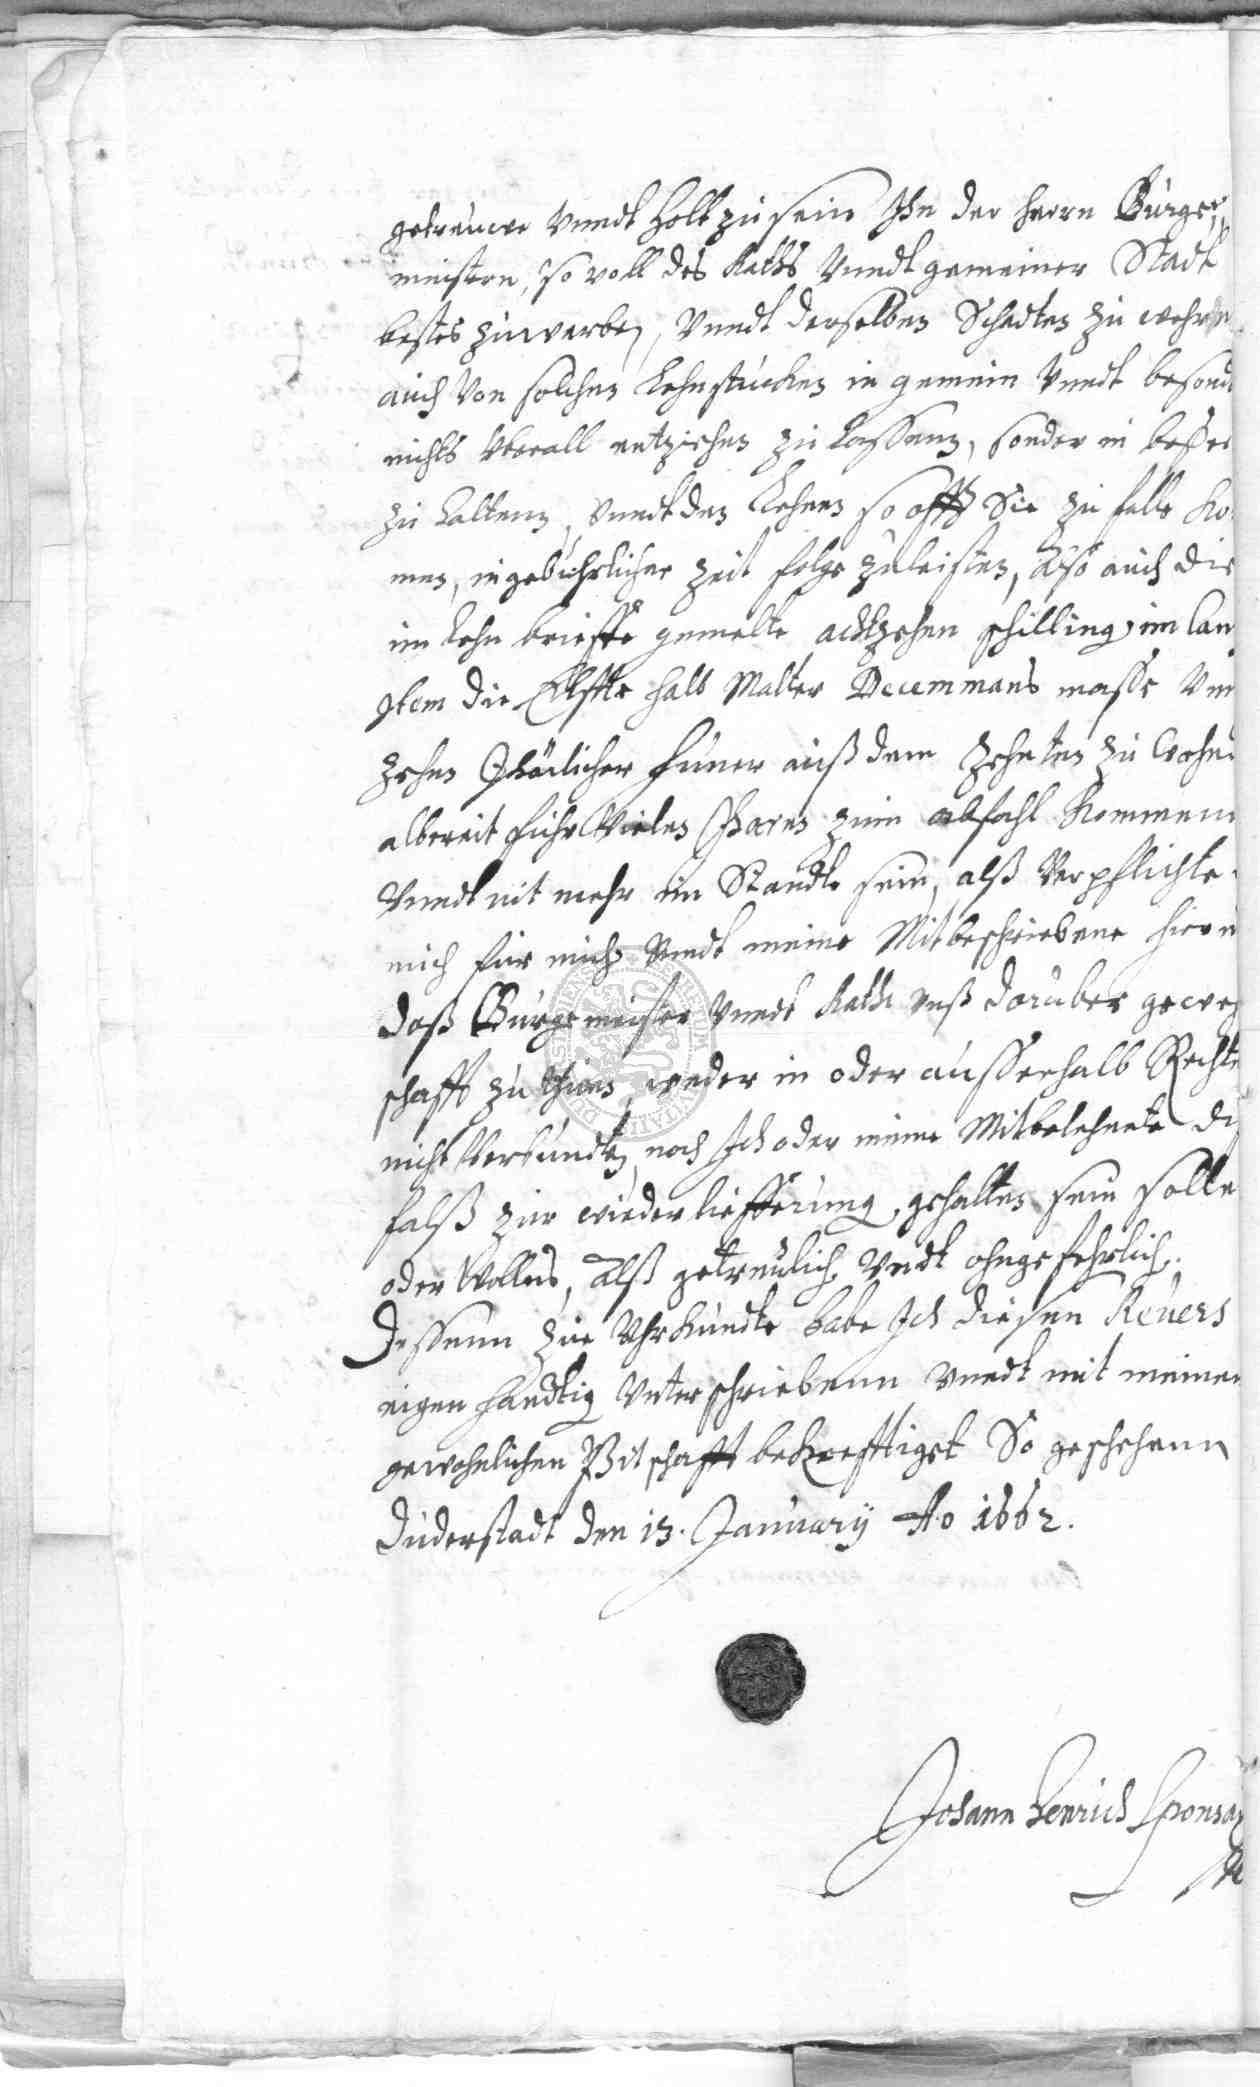 getreuwe vnndt holt zu sein Ihn der herrn Burger
meistern, so woll des Raths vnndt gemeiner Stadt
bestes zuwerben, vnndt derselben Schadten zu wehren
auch von solchen Lehnstucken in gemein vnndt besond
nichts vberall entziehen zu lassenn, sonder in beßer
zu haltenn, vnndt den Lehnen so offt Sie zu falle ko
men, in gebuhrlicher zeit folge zuleisten, Also auch die
im Lehn brieffe gemelte achtzehen schilling im lan
Item die Elffte halb Malter Decemmans masse vnn
zehen Jharlicher huner auß dem Zehnten zu
albereit fuhr vielen Jharen zum abfahl kommenn
vnndt nit mehr im Standte sein, alß verpflichte
mich fur mich vnndt meine Mitbeschriebene hier
daß Burgemeister vnndt Rath vnß daruber gewer
schafft zu thuen, weder in oder ausserhalb Rechte
nicht verbundten, noch Ich oder meine Mitbelehnete
falß zur wieder liefferung gehalten sein solle
oder wollen, Alß getreulich vndt ohngefehrlich.
Dessenn zur Uhrkundte habe Ich diesen Revers
eigen handtig unterschriebenn vnndt mit meinen
gewohnlichen Pitschafft bekrefftiget So geschehenn
Duderstadt den 13. January Ao 1662.
Johann Henrich